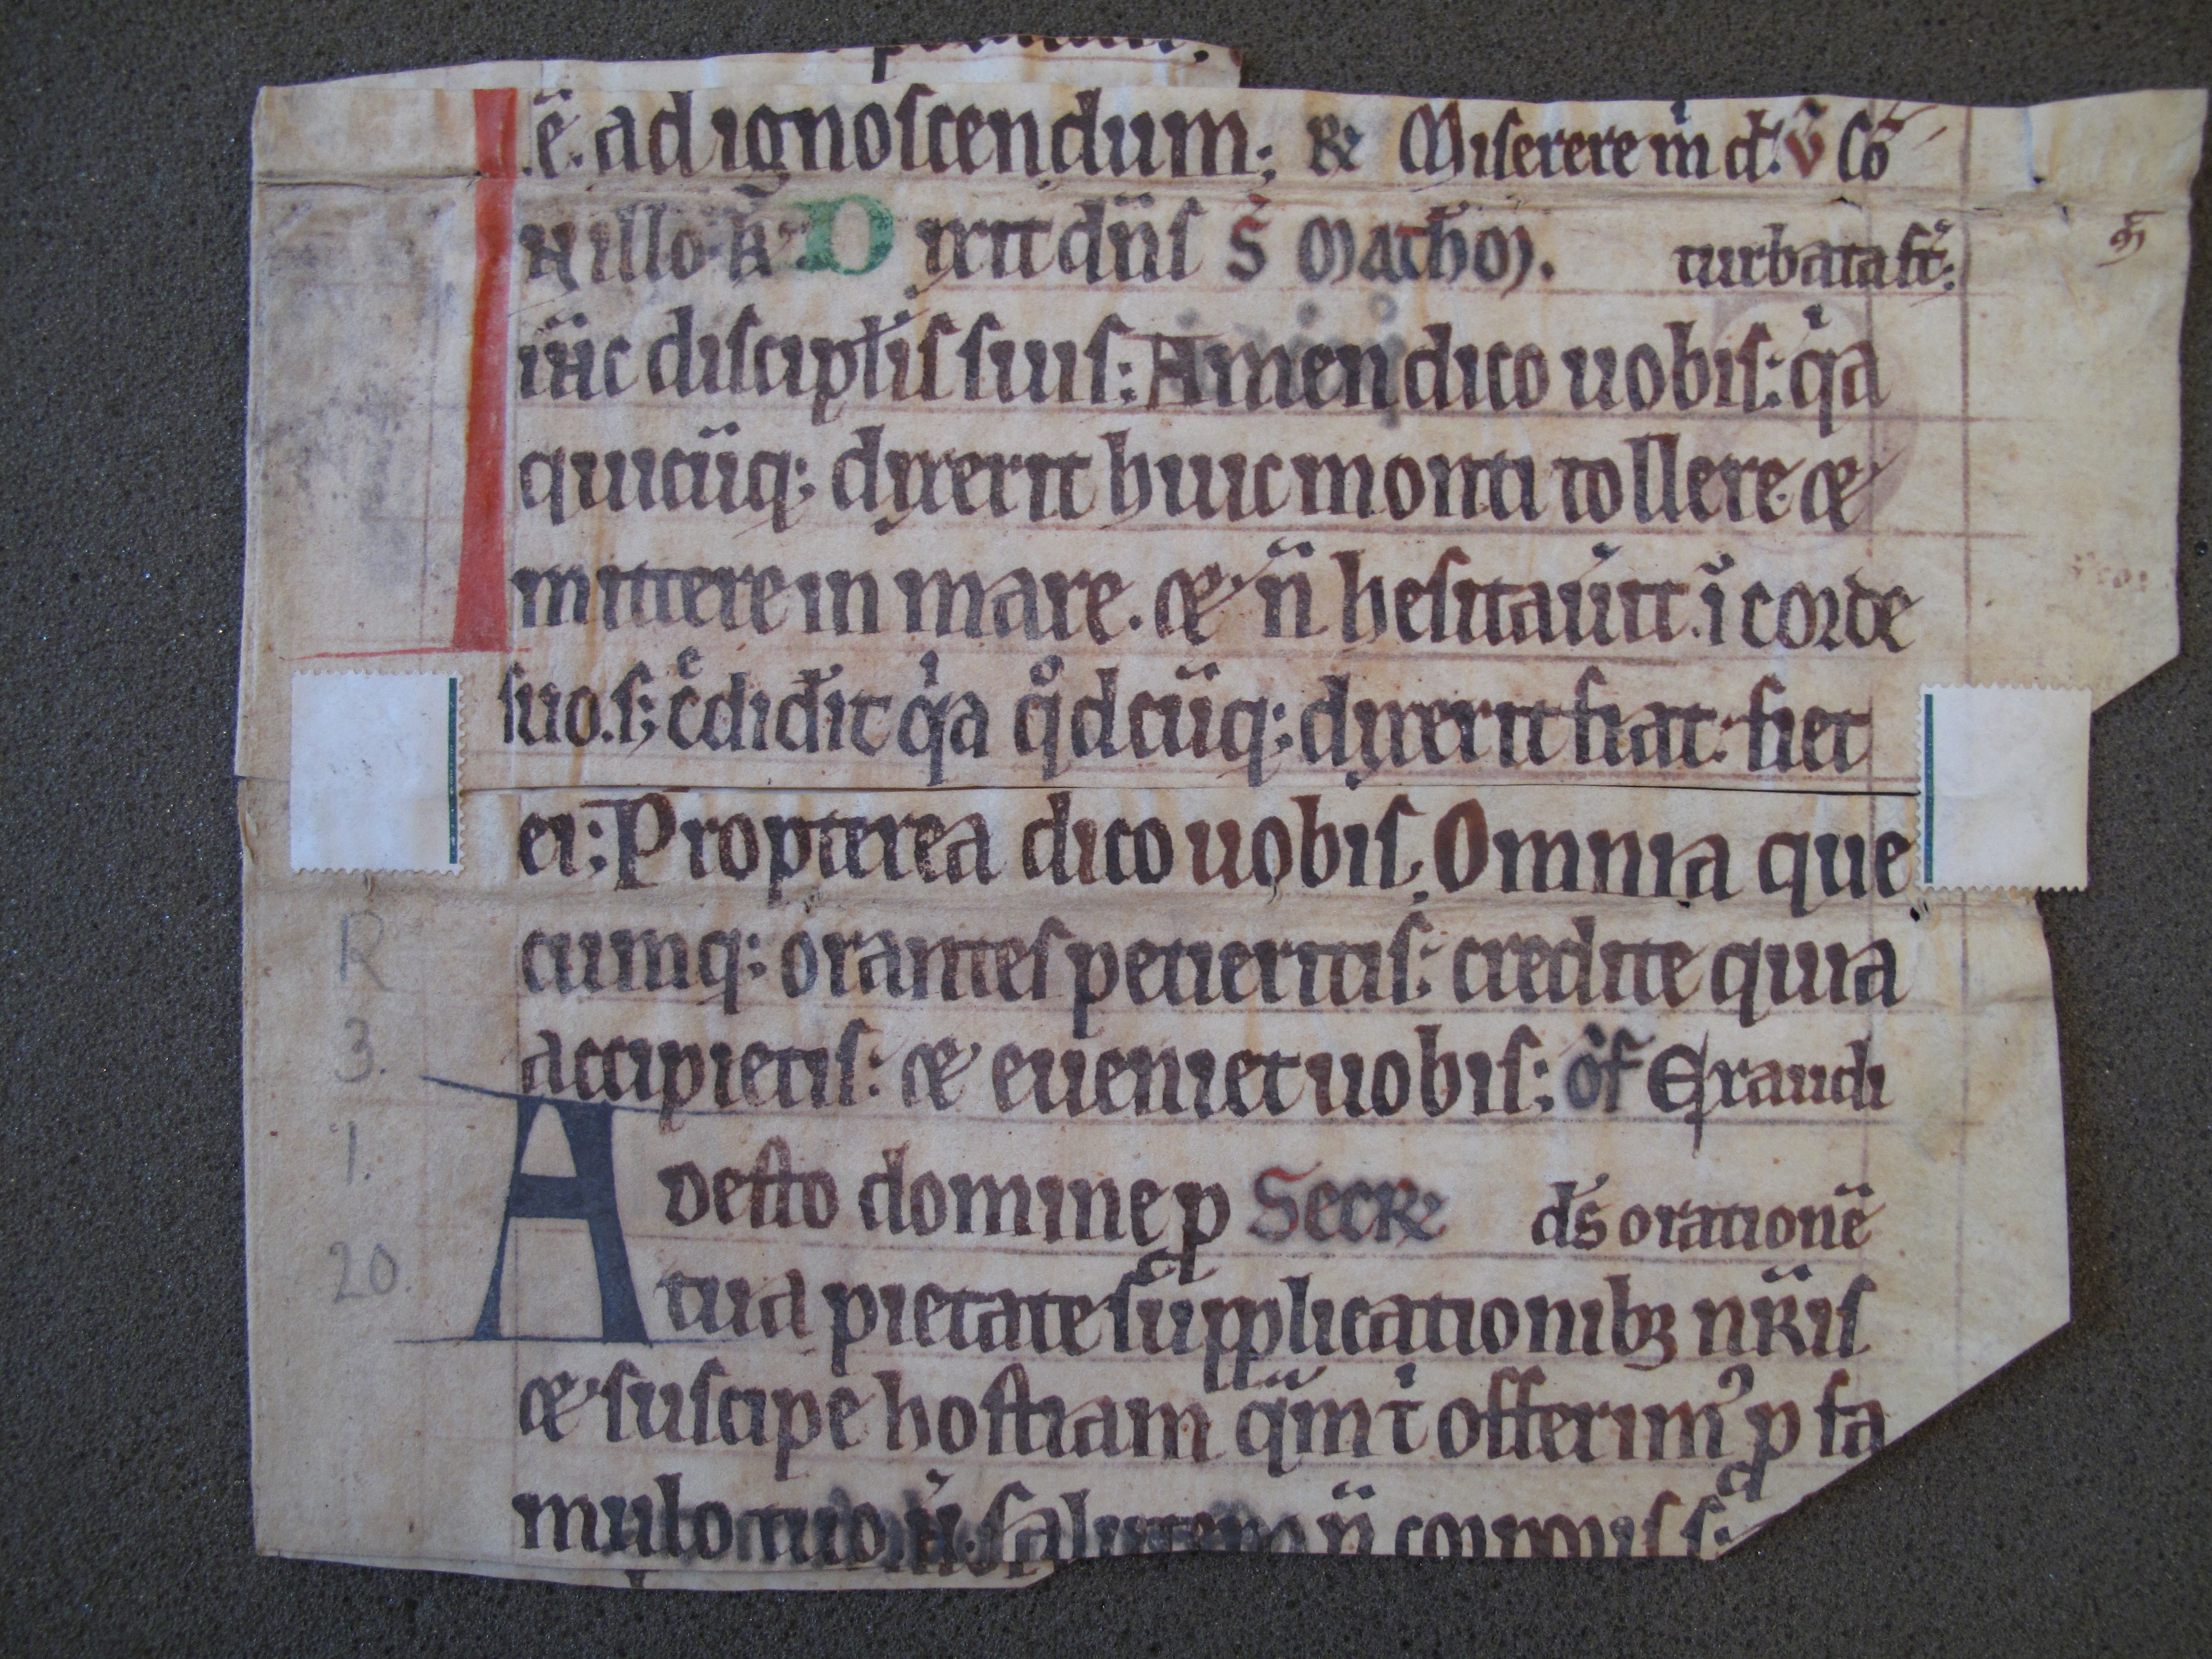 ē. ad ignoscendum; R Miserere m̄ d̄. v̄ Co
N illo t̄. Dixit dn̄s S Matheū. turbata st̄;
ih̄c discipl̄is suis: Amen dico uobis: qͥa
quicūq; dixerit huic monti tollere. &
mittere in mare. & n̄ hesitau̾it. ī corde
suo. s; c̾edid̾it qͥa qͦdcūq; dixerit fiat: fiet
ei; Propterea dico uobis. Omnia que
cumq; orantes petieritis: credite quia
accipietis: & eueniet uobis; of Exaudi
Adesto domine ꝑ Secr d̄s orationē
tua pietate supplicationibꝫ nr̄is
& suscipe hostiam qͣm tͥ offerimꝰ ꝓ fa
mulo tuo
R
3.
1.
20.